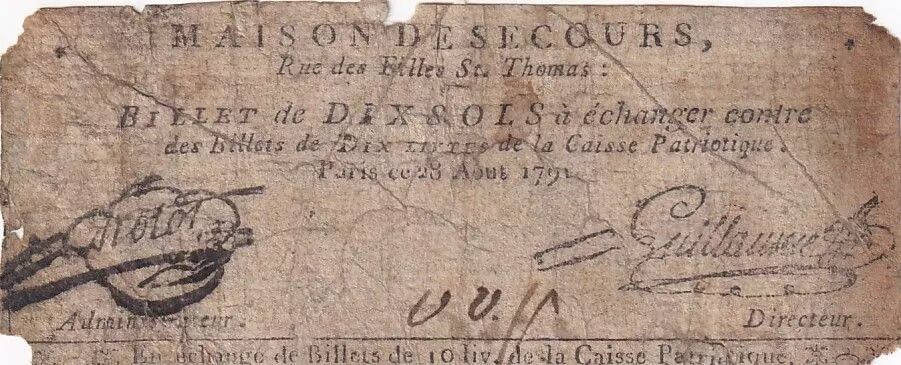 MAISON DE SECOURS,
Rue des Filles St. Thomas:
BILLET de DIX SOLS à échanger contre
des Billets de DIX LIVRES de la Caisse Patriotique.
Paris ce 28 Aout 1791
Guillaume
Administrateur. Directeur.
En échange de Billets de 10 liv. de la Caisse Patriotique,